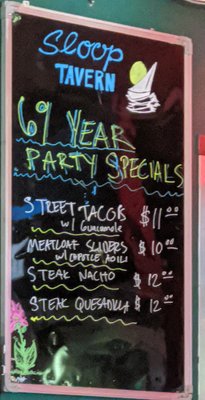 Sloop
TAVERN
69 YEAR
PARTY SPECIALS
STREET TACOS $11.00
w/ Guacamole
MEATLOAF SLIDERS $10.00
w/ CHIPOTLE AOILI
STEAK NACHO $12.00
STEAK QUESADILLA $12.00